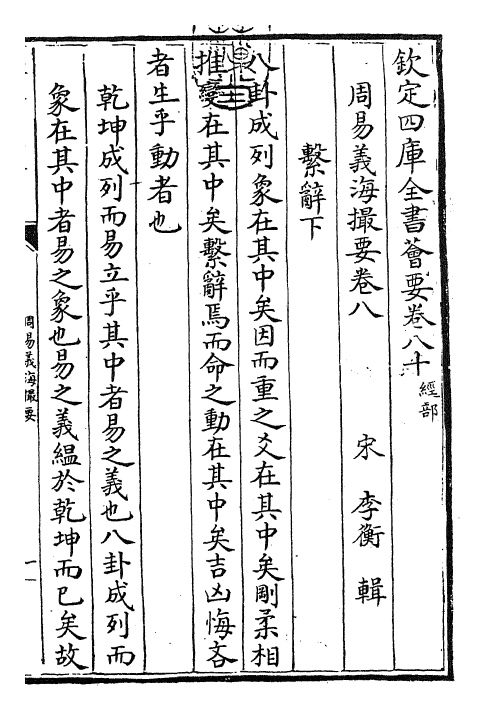 欽定四庫全書薈要卷八十
經部
周易義海撮要卷八
宋 李衡 輯
繫辭下
八卦成列象在其中矣因而重之爻在其中矣剛柔相
推變在其中矣繫辭焉而命之動在其中矣吉凶悔吝
者生乎動者也
乾坤成列而易立乎其中者易之義也八卦成列而
象在其中者易之象也易之義緼於乾坤而已矣故
周易義海撮要
一